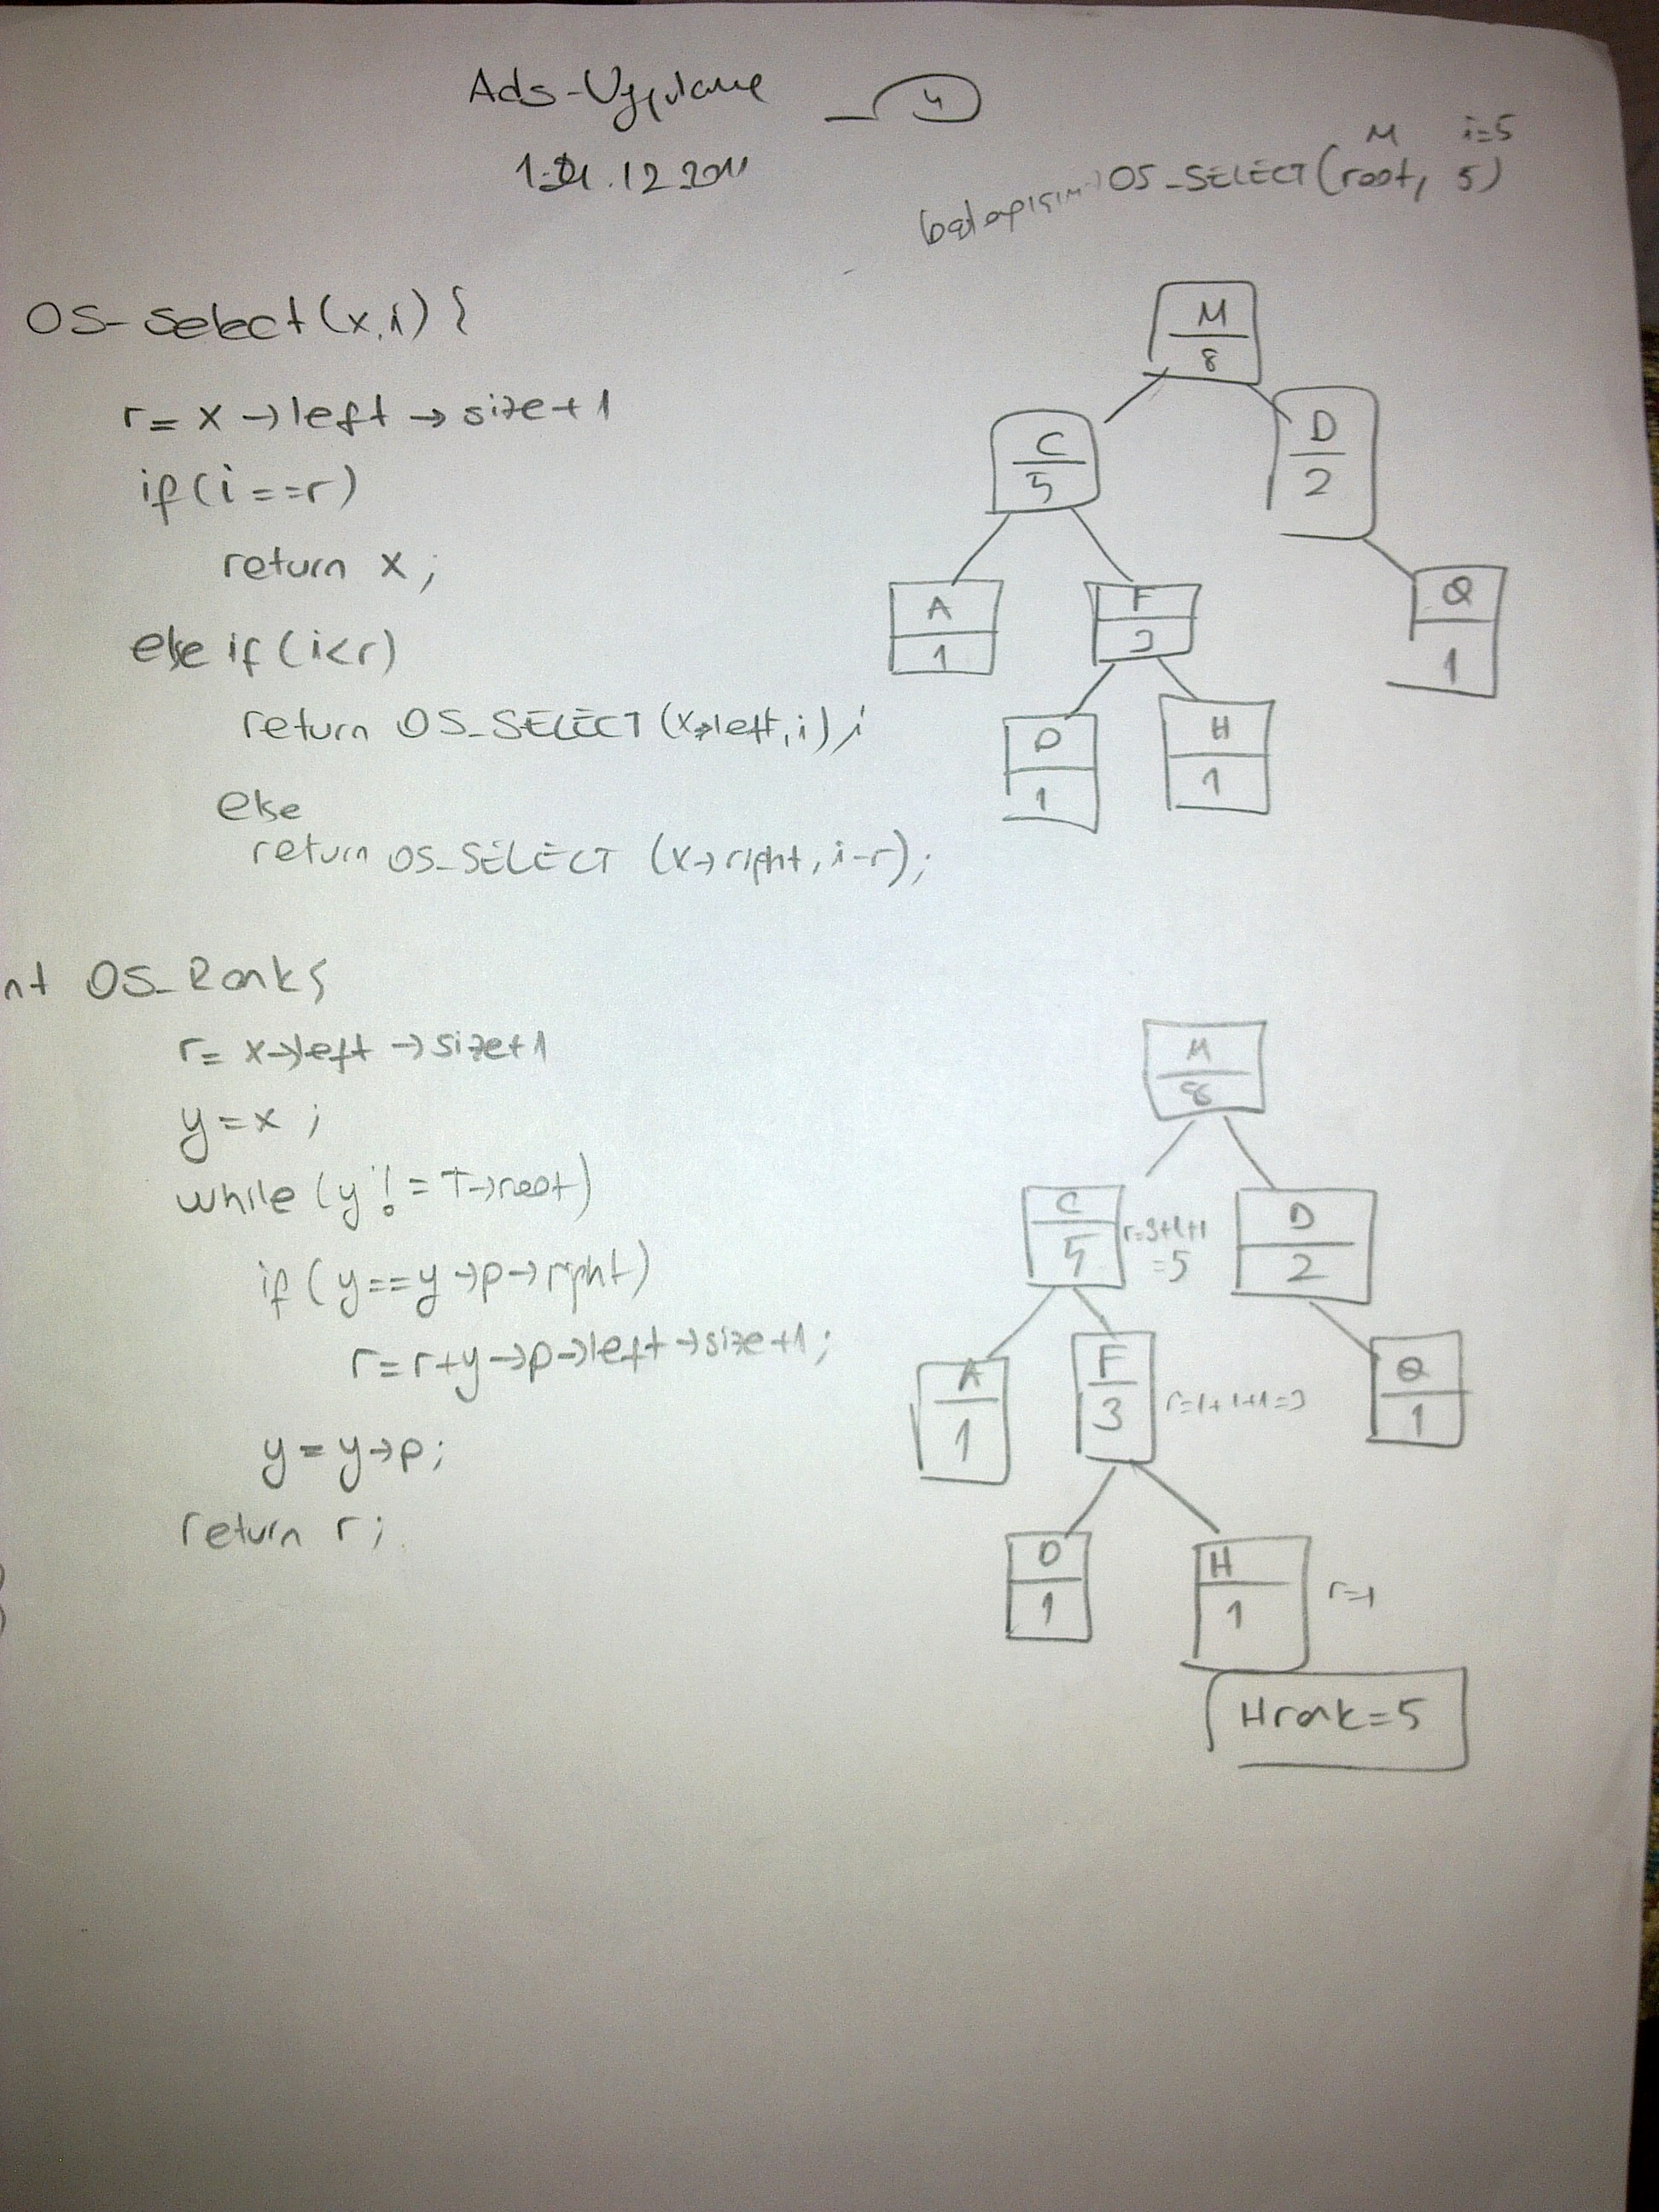 Ads-Uygulama 4
.12 2011
M i=5
OS_SELECT(root, 5)
OS-Select(x,i) {
r= x->left->size+1
if(i==r)
return x;
else if(i<r)
return OS_SELECT(x->left,i);
else
return OS_SELECT (x->right, i-r);
M
8
C
5
D
2
A
1
F
3
Q
1
D
1
H
1
nt OS_Rank{
r= x->left->size+1
y=x ;
while (y != T->root)
if(y==y->p->right)
r=r+y->p->left->size+1;
y=y->p;
return r;
}
M
8
C
5
r=3+1+1
=5
D
2
A
1
F
3
r=1+1+1=3
Q
1
D
1
H
1
r=1
H rank=5